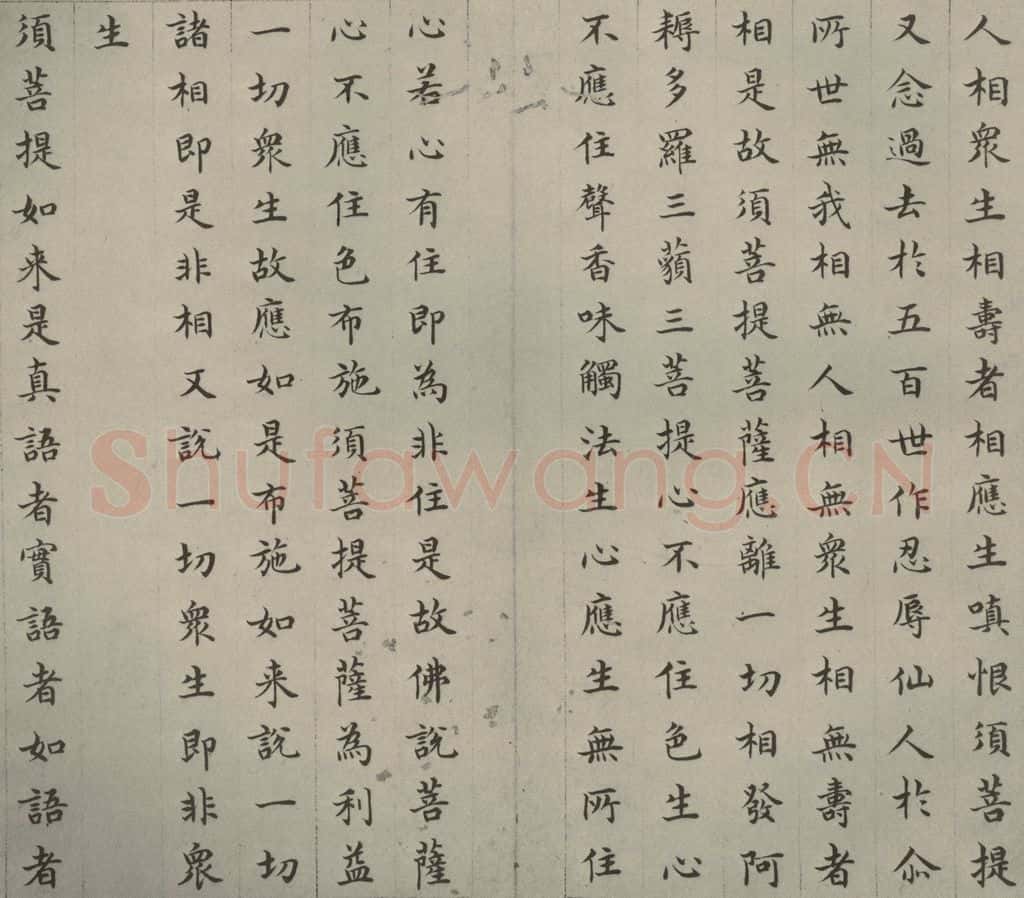 人相眾生相壽者相應生嗔恨須菩提
又念過去於五百世作忍辱仙人於尒
所世無我相無人相無眾生相無壽者
相是故須菩提菩薩應離一切相發阿
耨多羅三藐三菩提心不應住色生心
不應住聲香味觸法生心應生無所住
心若心有住即為非住是故佛說菩薩
心不應住色布施須菩提菩薩為利益
一切眾生故應如是布施如来說一切
諸相即是非相又說一切眾生即非眾
生
須菩提如来是真語者實語者如語者
Shufawang.CN